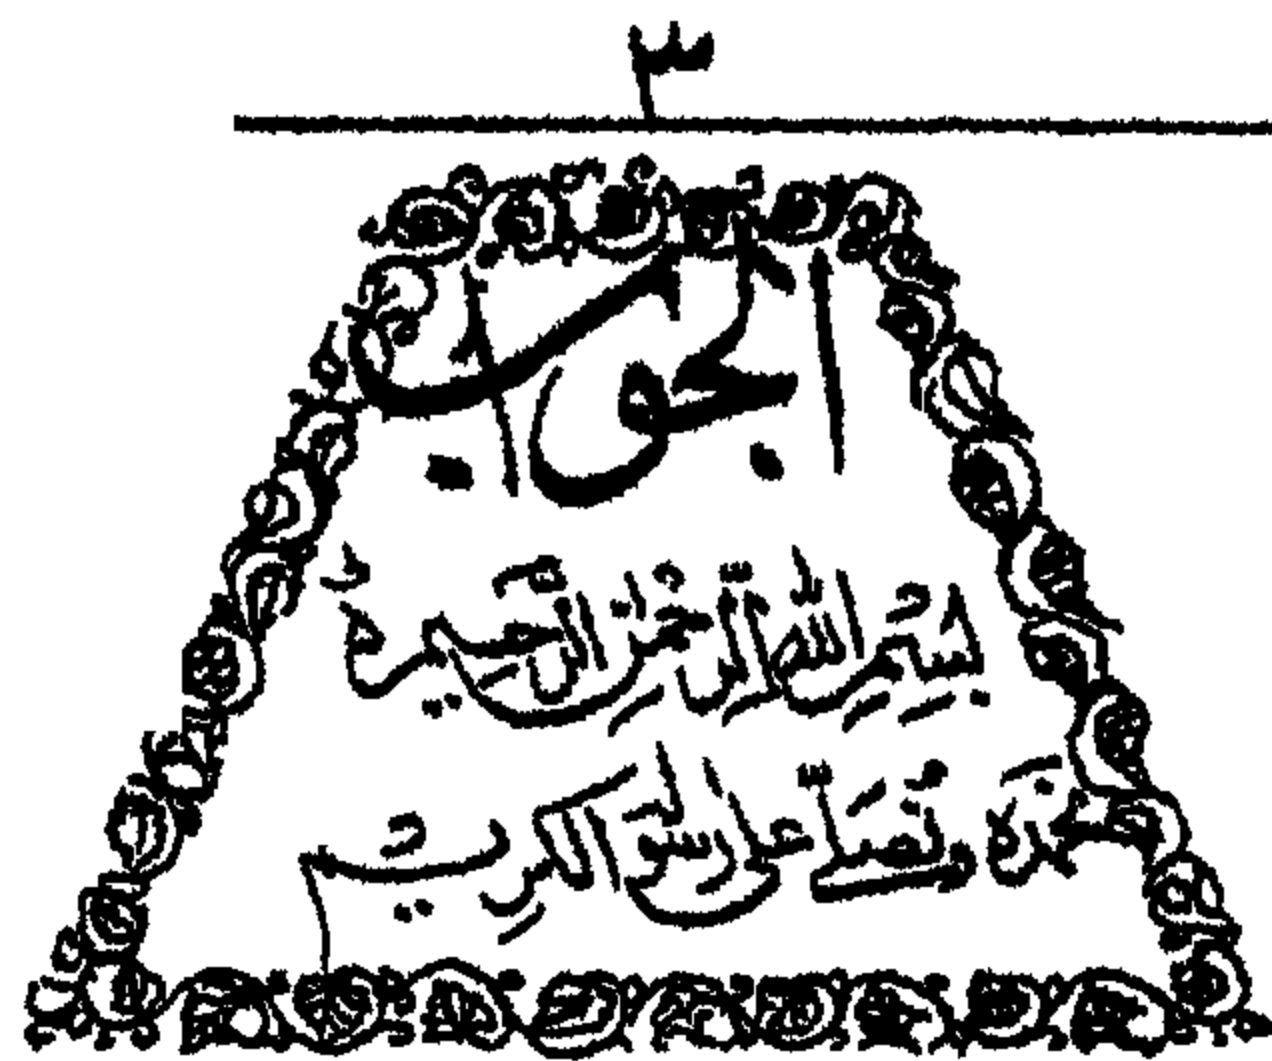 ۳
الجواب
بِسْمِ اللهِ الرَّحْمٰنِ الرَّحِيْمِ
نَحْمَدُهٗ وَنُصَلِّيْ عَلٰى رَسُوْلِهِ الْكَرِيْمِ